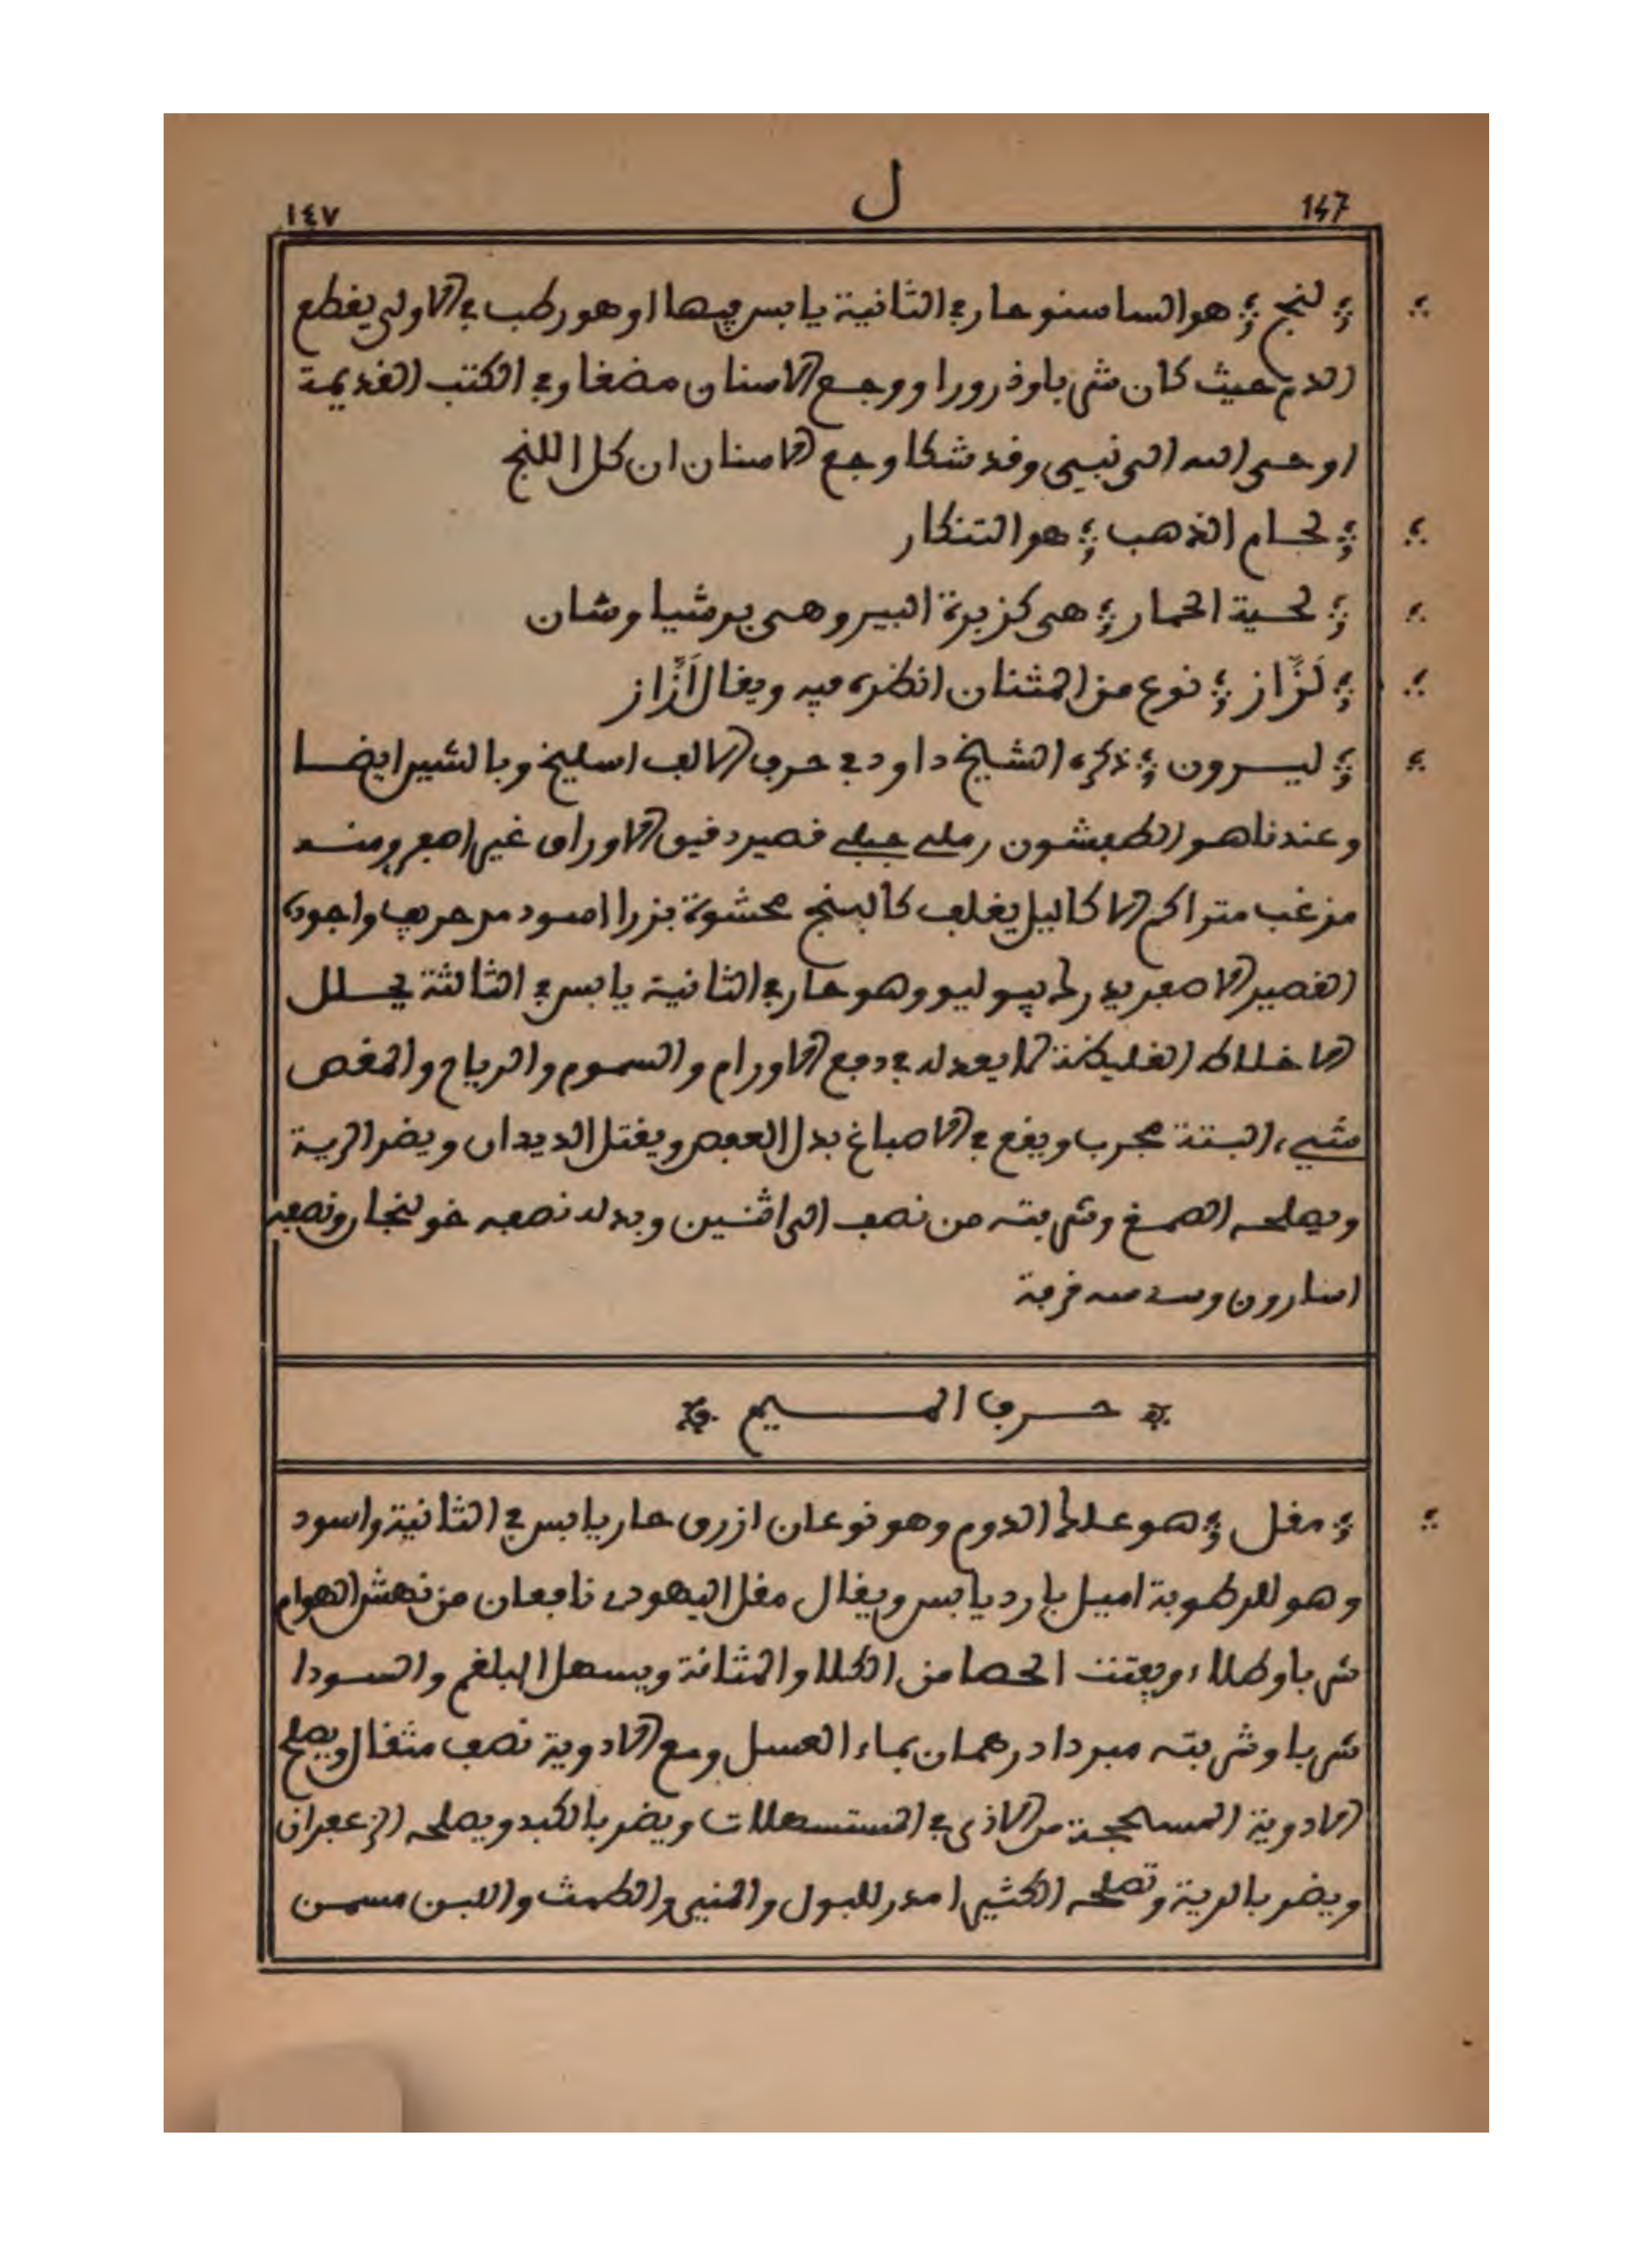 ١٤٧ ل 147
لنج هو الساسنو حار في الثانية يابس فيها او هو رطب في الاولى يقطع
الدم حيث كان شربا وذرورا ووجع الاسنان مضغا وفي الكتب القديمة
اوحى الله الى نبيي وقد شكا وجع الاسنان ان كل اللنج
لحام الذهب هو التنكار
لحية الحمار هي كزبرة البير وهي برشياوشان
لَزَّاز نوع من المثنان انظره فيه ويقال لَزَّاز
ليسرون ذكره الشيخ داود في حرف الالف اسليخ وبالشير ايضا
وعندنا هو الطفشون رملي جبلي قصير دقيق الاوراق غير اصفر ومنه
مزغب متراكم الاكاليل يغلف كالبنج محشوة بزرا اسود مر حريف واجوده
القصير الاصفر يدرك بيوليو وهو حار في الثانية يابس في الثالثة يحلل
الاخلاط الغليظة لا يعدله في دفع الاورام والسموم والرياح والمغص
شيء البتة مجرب ويقع في الاصباغ بدل العفص ويقتل الديدان ويضر الرية
ويصلحه الصمغ وشربته من نصف الى اثنين وبدله نصفه خولنجان ونصفه
اسارون وسدسه قرفة
حرف الميم
مقل هو علك الدوم وهو نوعان ازرق حار يابس في الثانية واسود
وهو للرطوبة اميل بارد يابس ويقال مقل اليهودي نافعان من نهش الهوام
شربا وطلاء ويفتت الحصا من الكلا والمثانة ويسهل البلغم والسودا
شربا وشربته مبردا درهمان بماء العسل ومع الادوية نصف مثقال ويصلح
الادوية المسحجة من الاذى في المستسهلات ويضر بالكبد ويصلحه الزعفران
ويضر بالرية وتصلحه الكثيرا مدر للبول والمني والطمث واللبن مسمن